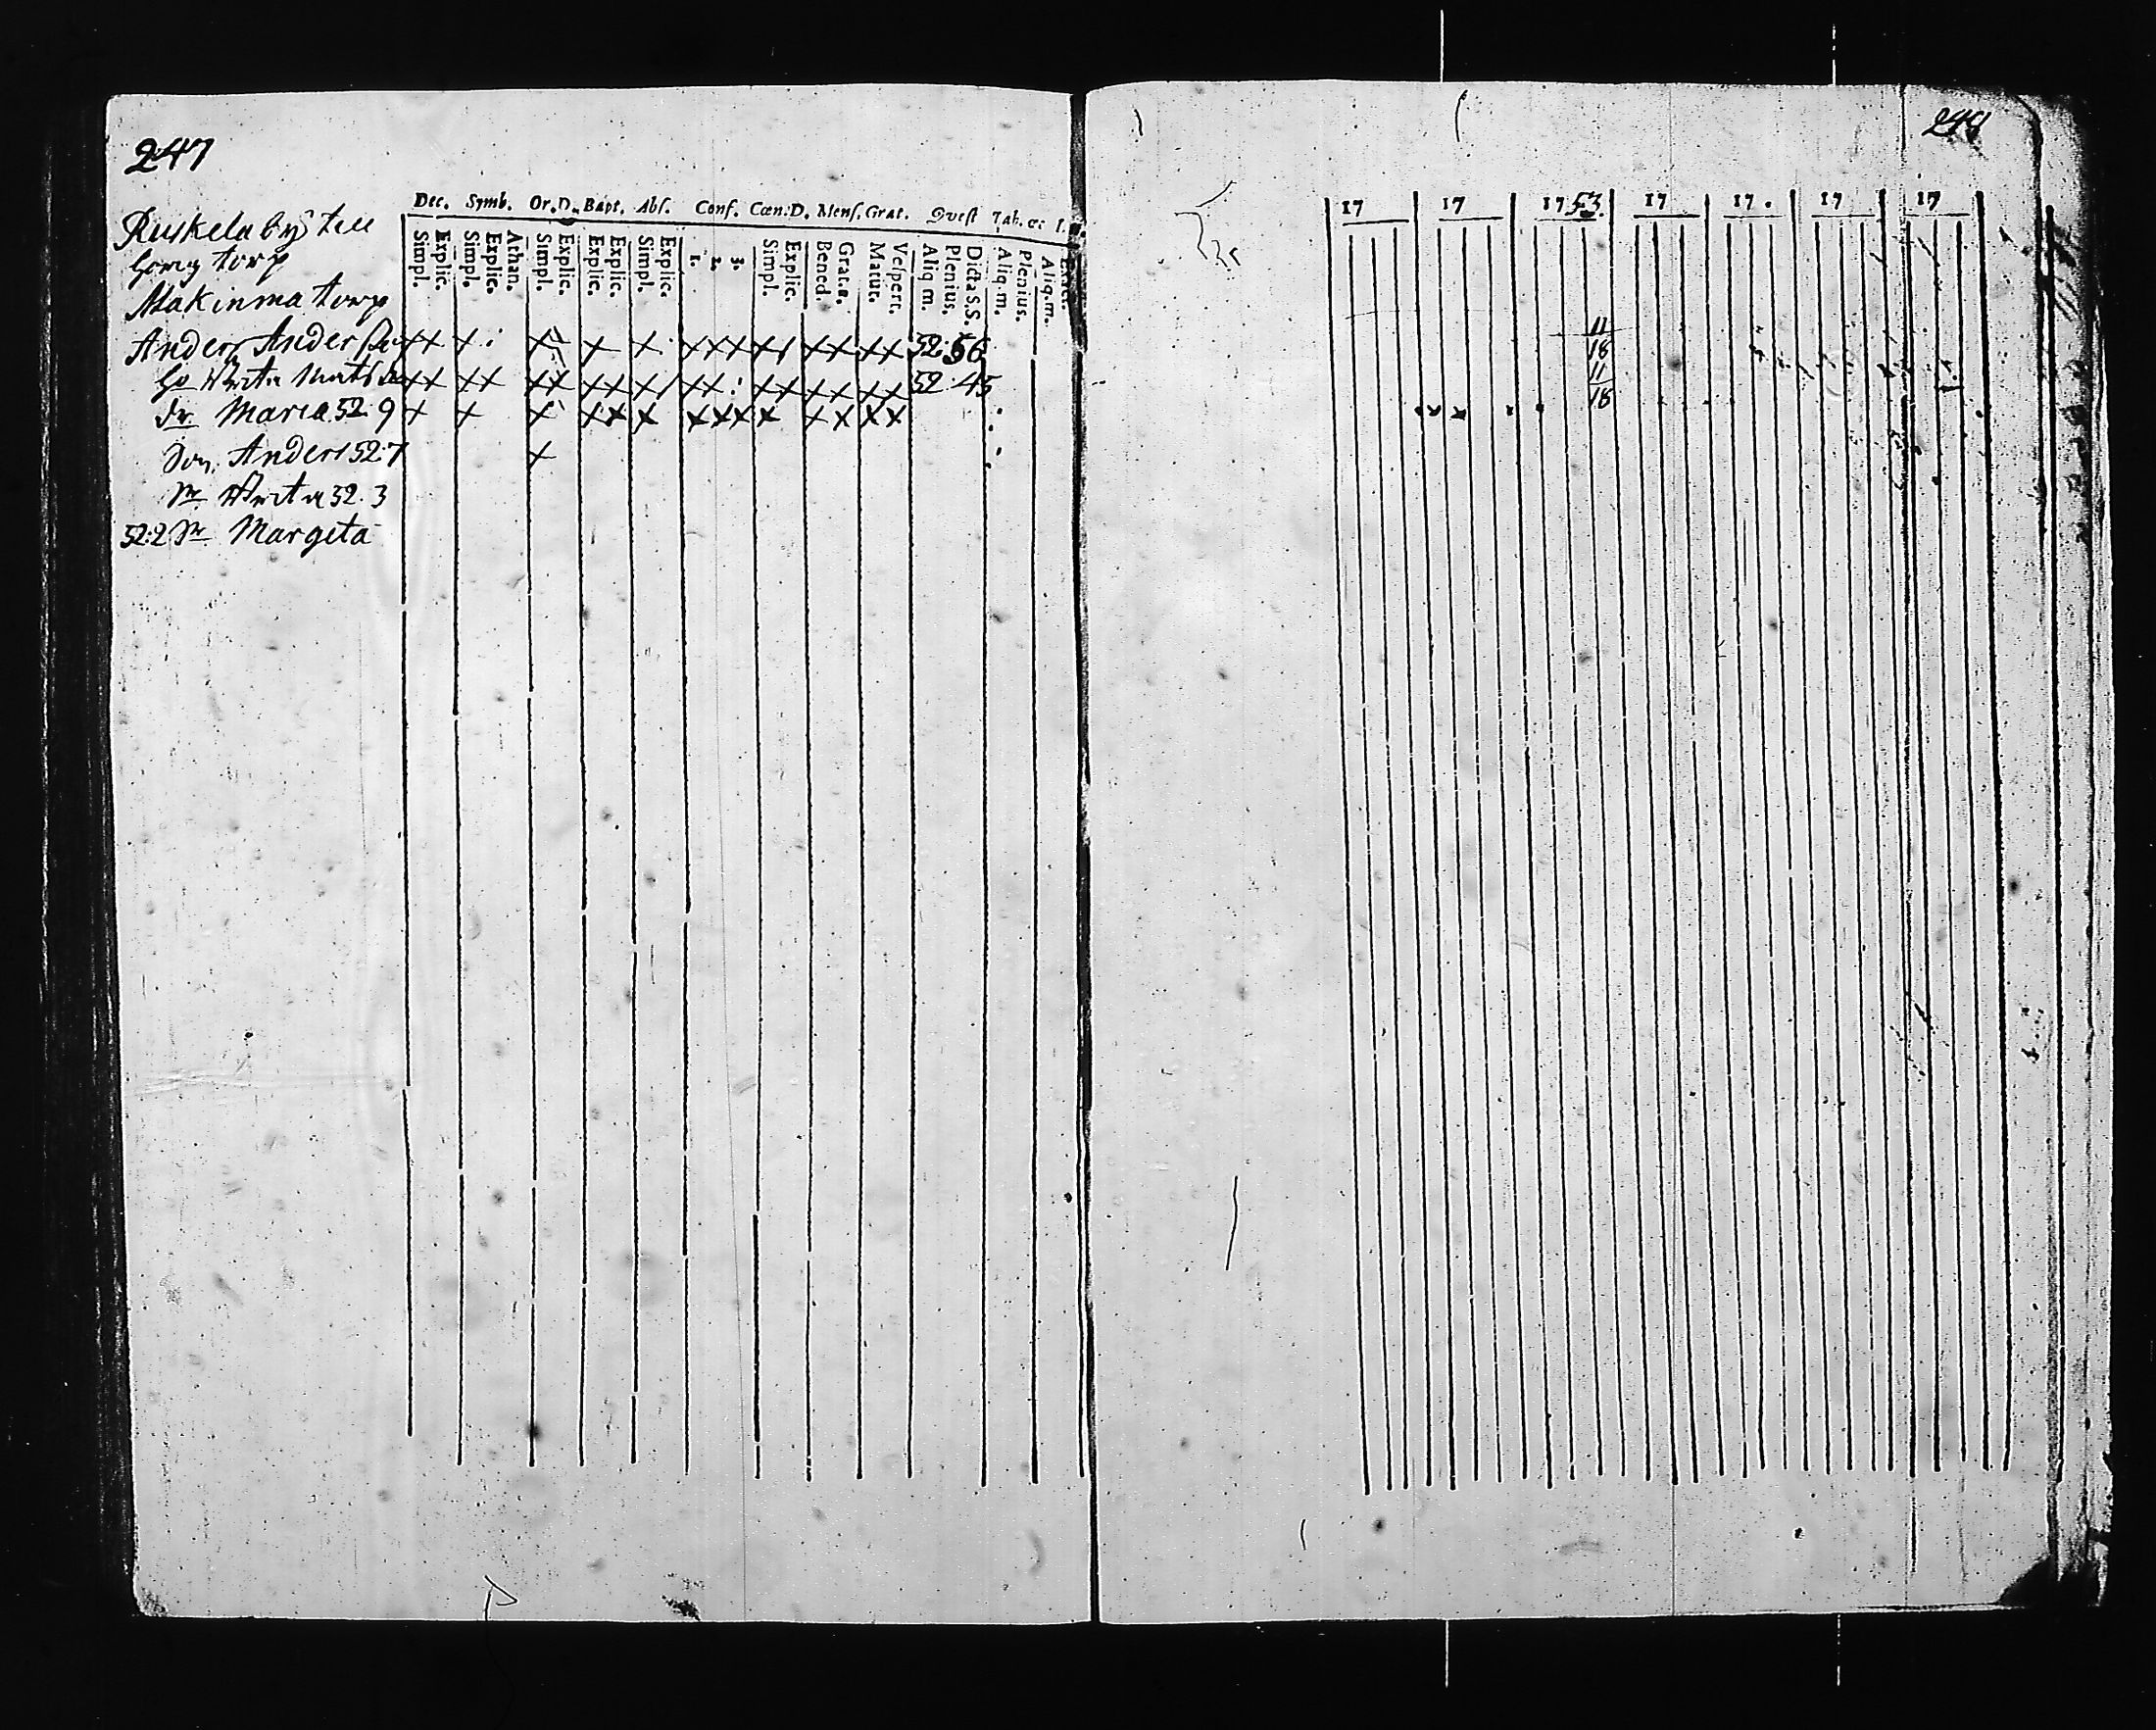 247
Dec. Symb. Or.D. Bapt. Abs. Conf. Cœn:D. Mens. Grat. Qvest Tab.
Simpl. Explic. Simpl. Explic. Athan. Simpl. Explic. Explic. Explic. Simpl. Explic. 1. 2. 3. Simpl. Explic. Bened. Grat.a. Matut. Vespert. Aliq m. Plenius. Dicta S.S. Aliq.m. Plenius. Aliq.m.
Ruskela
torp
Makinma torp
Anders Anders 52:56
Mats 52:45
Dr. Maria 52:9
Son. Anders 52:7
Dr. 52.3
52:2 Dr. Margeta
249
17 17 1753. 17 17. 17 17
11
18
11
18